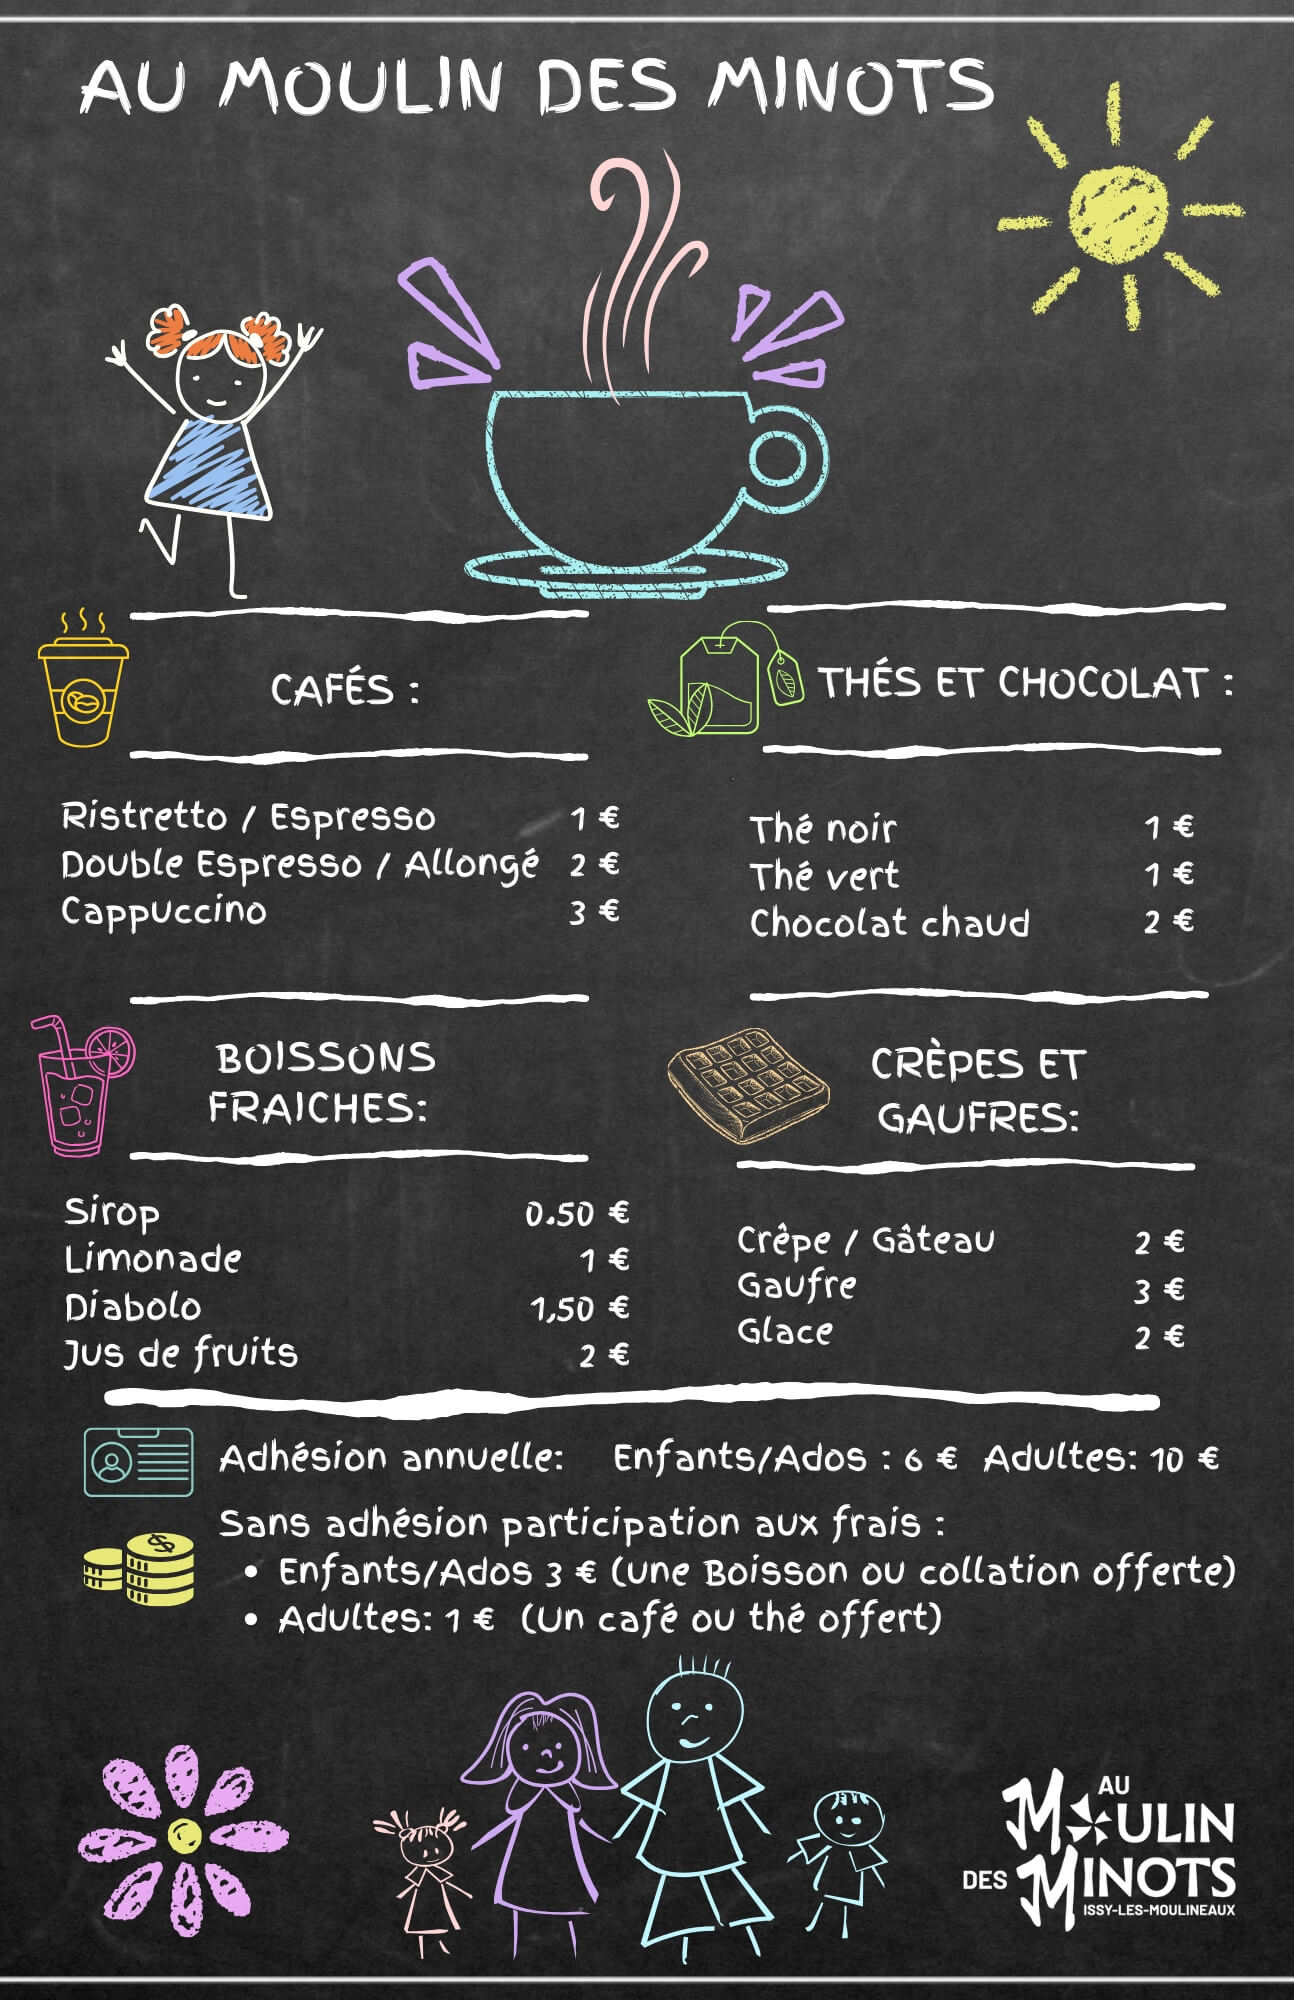 AU MOULIN DES MINOTS
CAFÉS :
Ristretto / Espresso 1 €
Double Espresso / Allongé 2 €
Cappuccino 3 €
THÉS ET CHOCOLAT :
Thé noir 1 €
Thé vert 1 €
Chocolat chaud 2 €
BOISSONS
FRAICHES:
Sirop 0.50 €
Limonade 1 €
Diabolo 1,50 €
Jus de fruits 2 €
CRÈPES ET
GAUFRES:
Crêpe / Gâteau 2 €
Gaufre 3 €
Glace 2 €
Adhésion annuelle: Enfants/Ados : 6 € Adultes: 10 €
Sans adhésion participation aux frais :
• Enfants/Ados 3 € (une Boisson ou collation offerte)
• Adultes: 1 € (Un café ou thé offert)
$
AU
MOULIN
DES MINOTS
ISSY-LES-MOULINEAUX